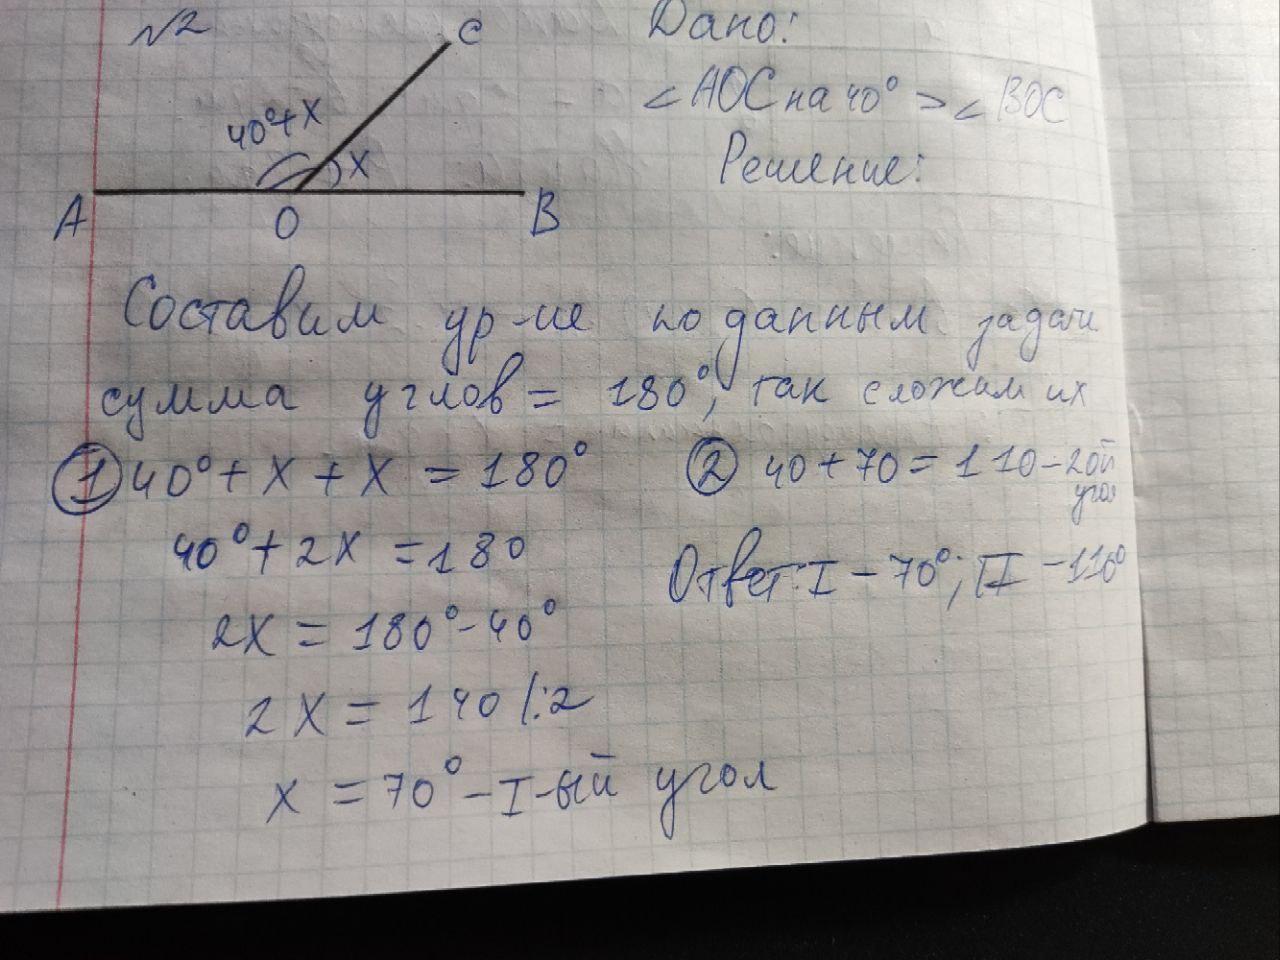 №2
C
40°+x
x
A
O
B
Дано:
∠AOC на 40° > ∠BOC
Решение:
Составим ур-ие по данным задачи
сумма углов = 180°, так сложим их
① 40° + x + x = 180°
40° + 2x = 180
2x = 180° - 40°
2x = 140 /:2
x = 70° - I-ый угол
② 40 + 70 = 110 - 2ой
угол
Ответ: I - 70°; II - 110°